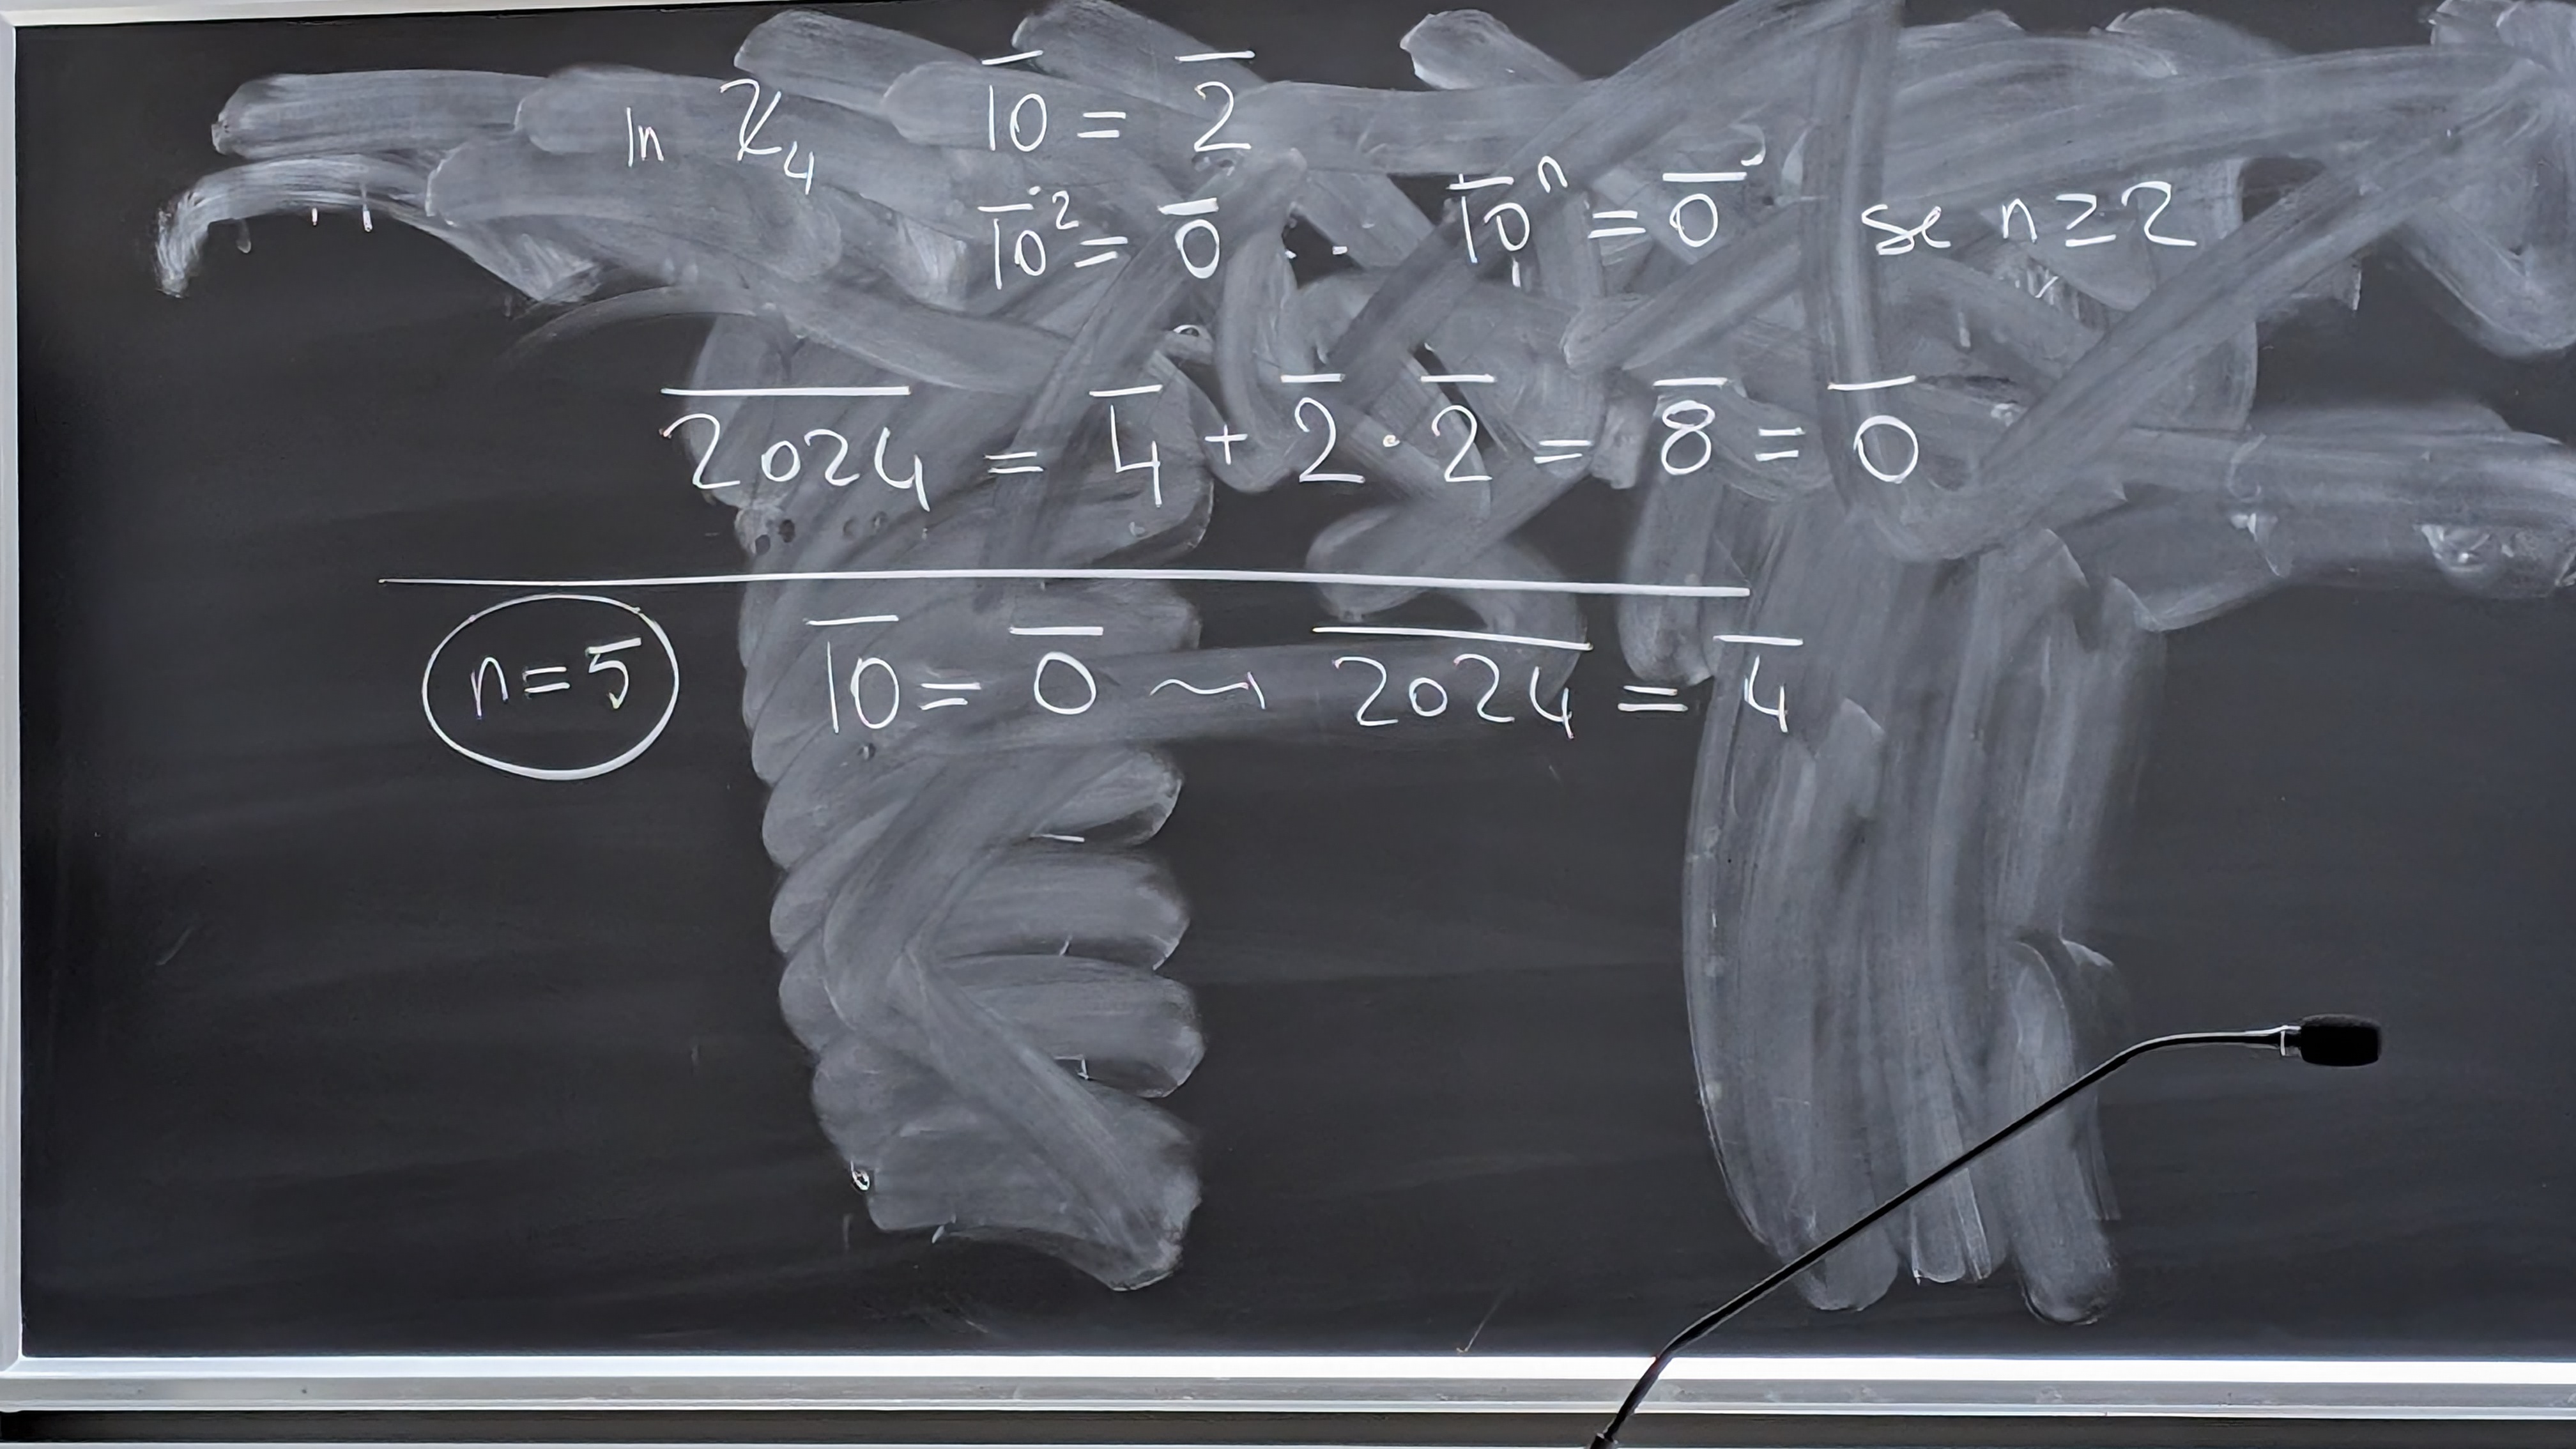 In ℤ₄ 1̅0̅ = 2̅
1̅0̅² = 0̅ .. 1̅0̅ⁿ = 0̅ se n ≥ 2
2̅0̅2̅4̅ = 4̅ + 2̅ · 2̅ = 8̅ = 0̅
n = 5 1̅0̅ = 0̅ ⇝ 2̅0̅2̅4̅ = 4̅